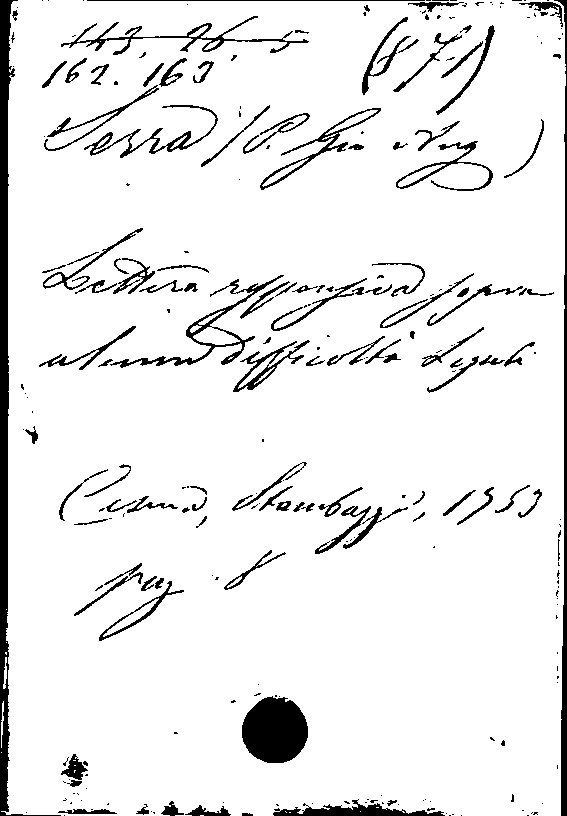 143. 26. 5
162. 163. (871)
Serra (P. Gio Aug)
Lettera responsiva sopra
alcune difficoltà Legali
Cesena, 1753
pag 8